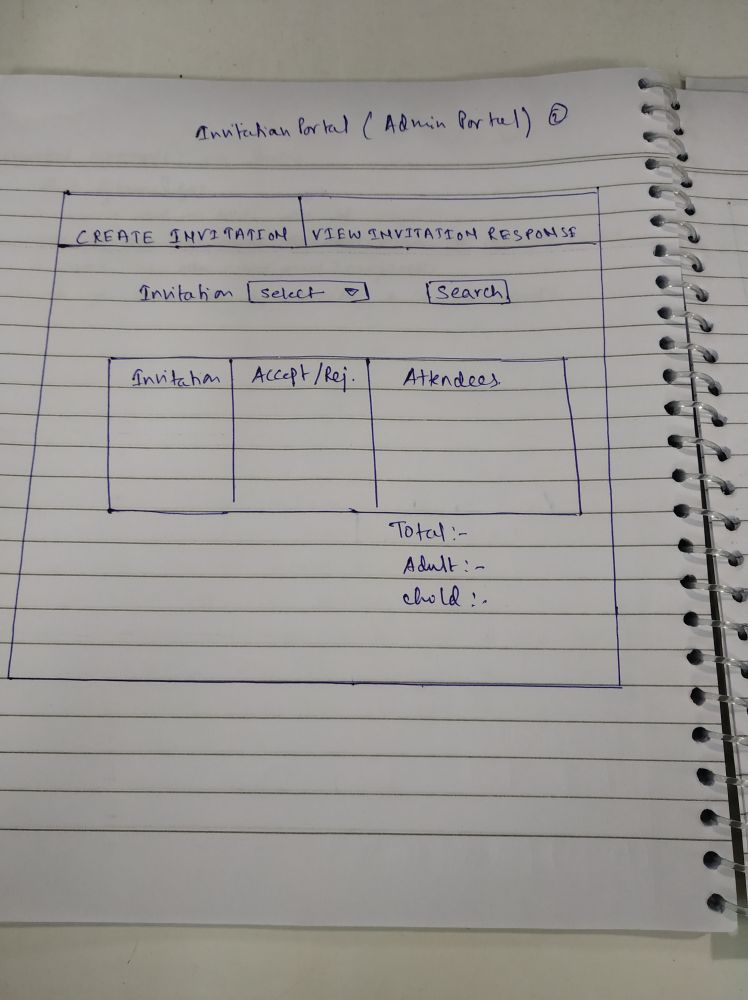 Invitation Portal ( Admin Portal) ②
CREATE INVITATION VIEW INVITATION RESPONSE
Invitation Select Search
Invitation Accept/Rej. Attendees.
Total :-
Adult :-
Chold :-